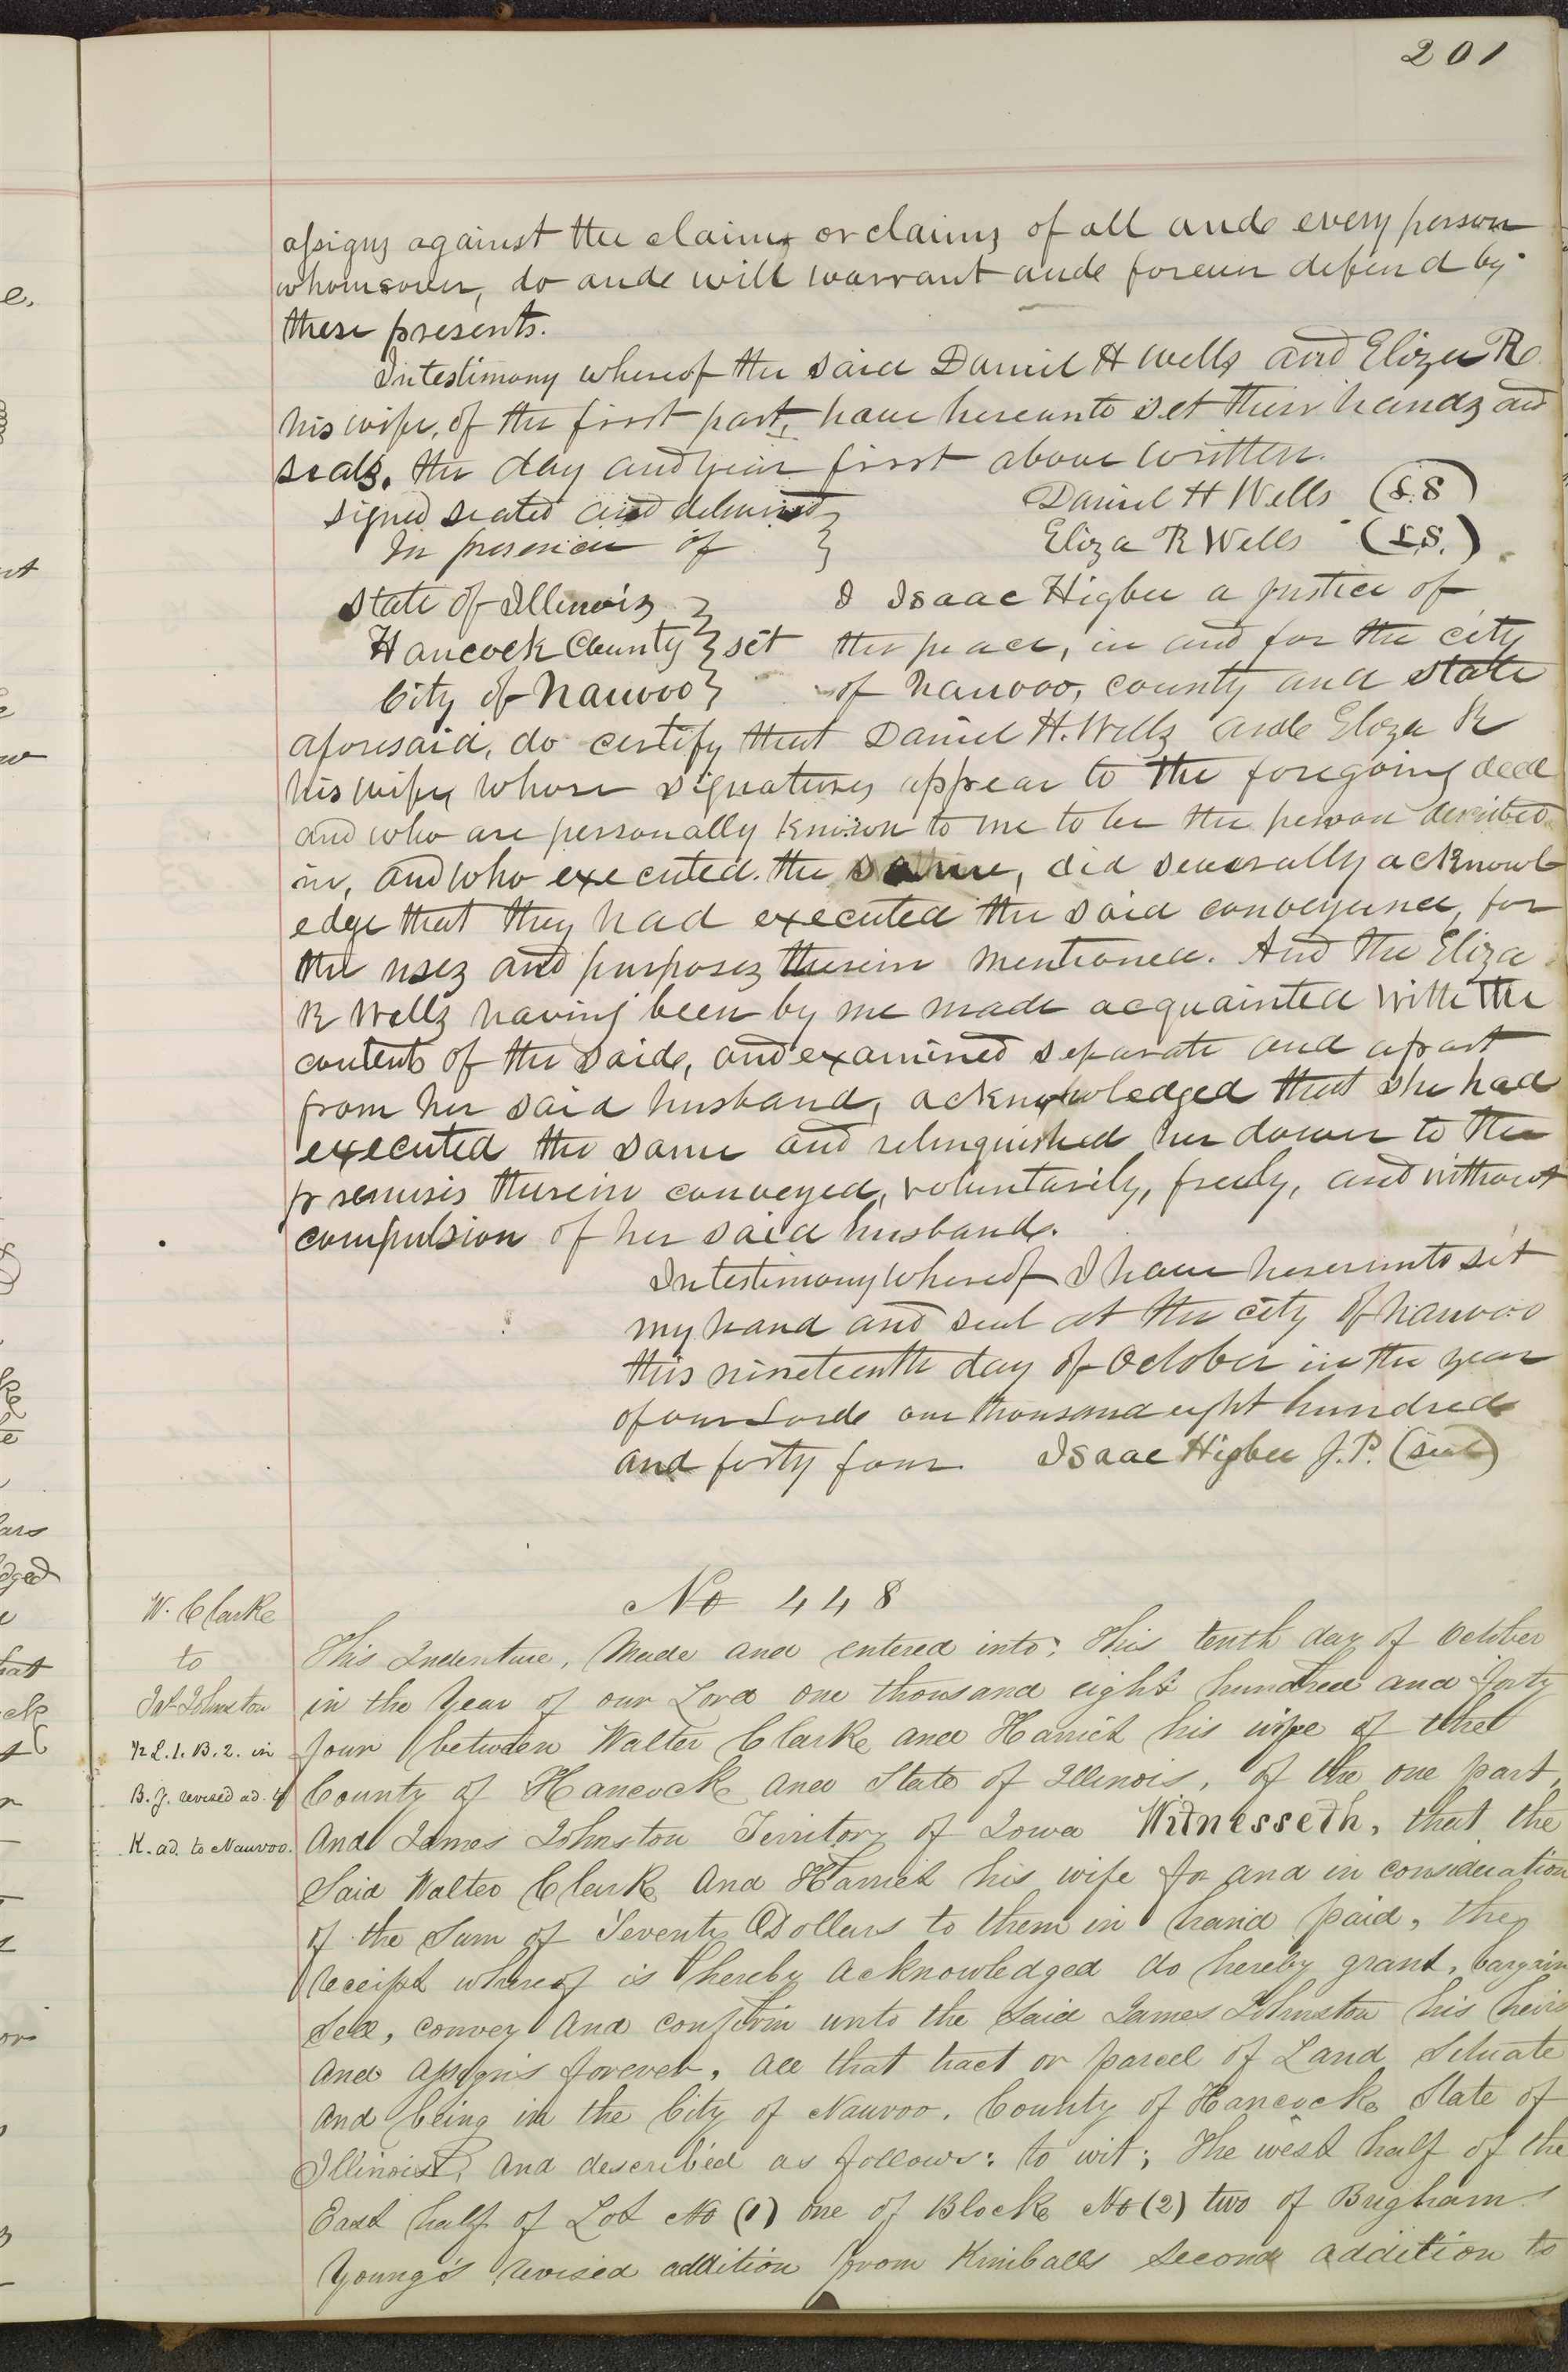 201
assigns against the claim or claims of all and every person
whomsoever, do and will warrant and forever defend by
these presents.
In testimony whereof the said Daniel H Wells and Eliza R
his wife, of the first part, have hereunto set their hands and
seals, the day and year first above written.
signed sealed and delivered } Daniel H Wells (L.S)
In presence of } Eliza R Wells (L.S.)
State of Illinois } I Isaac Higbee a justice of
Hancock County } sct the peace, in and for the city
City of Nauvoo } of Nauvoo, county and state
aforesaid, do certify that Daniel H. Wells and Eliza R
his wife, whose signatures appear to the foregoing deed
and who are personally known to me to be the person described
in, and who executed the same, did severally acknowl
edge that they had executed the said conveyance, for
the uses and purposes therein mentioned. And the Eliza
R Wells having been by me made acquainted with the
contents of the said, and examined separate and apart
from her said husband, acknowledged that she had
executed the same and relinquished her dower to the
premisis therein conveyed, voluntarily, freely, and without
compulsion of her said husband.
In testimony whereof I have hereunto set
my hand and seal at the city of Nauvoo
this nineteenth day of October in the year
of our Lord one thousand eight hundred
and forty four. Isaac Higbee J.P. (seal)
No 448
W. Clarke
to
Jas Johnston
L. 1. B. 2. in
B. Y. revised ad. of
K. ad. to Nauvoo.
This Indenture, Made and entered into; this tenth day of October
in the Year of our Lord one thousand eight hundred and forty
four between Walter Clarke and Harriet his wife of the
County of Hancock and State of Illinois, of the one part,
And James Johnston Territory of Iowa Witnesseth, that the
Said Walter Clarke And Harriet his wife for and in consideration
of the Sum of Seventy Dollars to them in hand paid, the
receipt whereof is hereby acknowledged do hereby grant, bargain
Sell, convey And confirm unto the Said James Johnston his heirs
And assigns forever, all that tract or parcel of Land Situate
And being in the City of Nauvoo, County of Hancock State of
Illinois, And described as follows: to wit; The west half of the
East half of Lot No (1) one of Block No (2) two of Brigham
Young's revised addition from Kimballs Second addition to